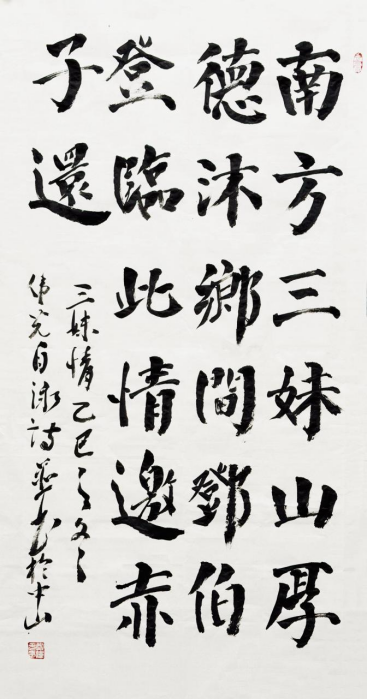 南方三妹山厚
德沐鄉間鄧伯
登臨此情邀赤
子還
三妹情乙巳之冬
自詩并书於中山